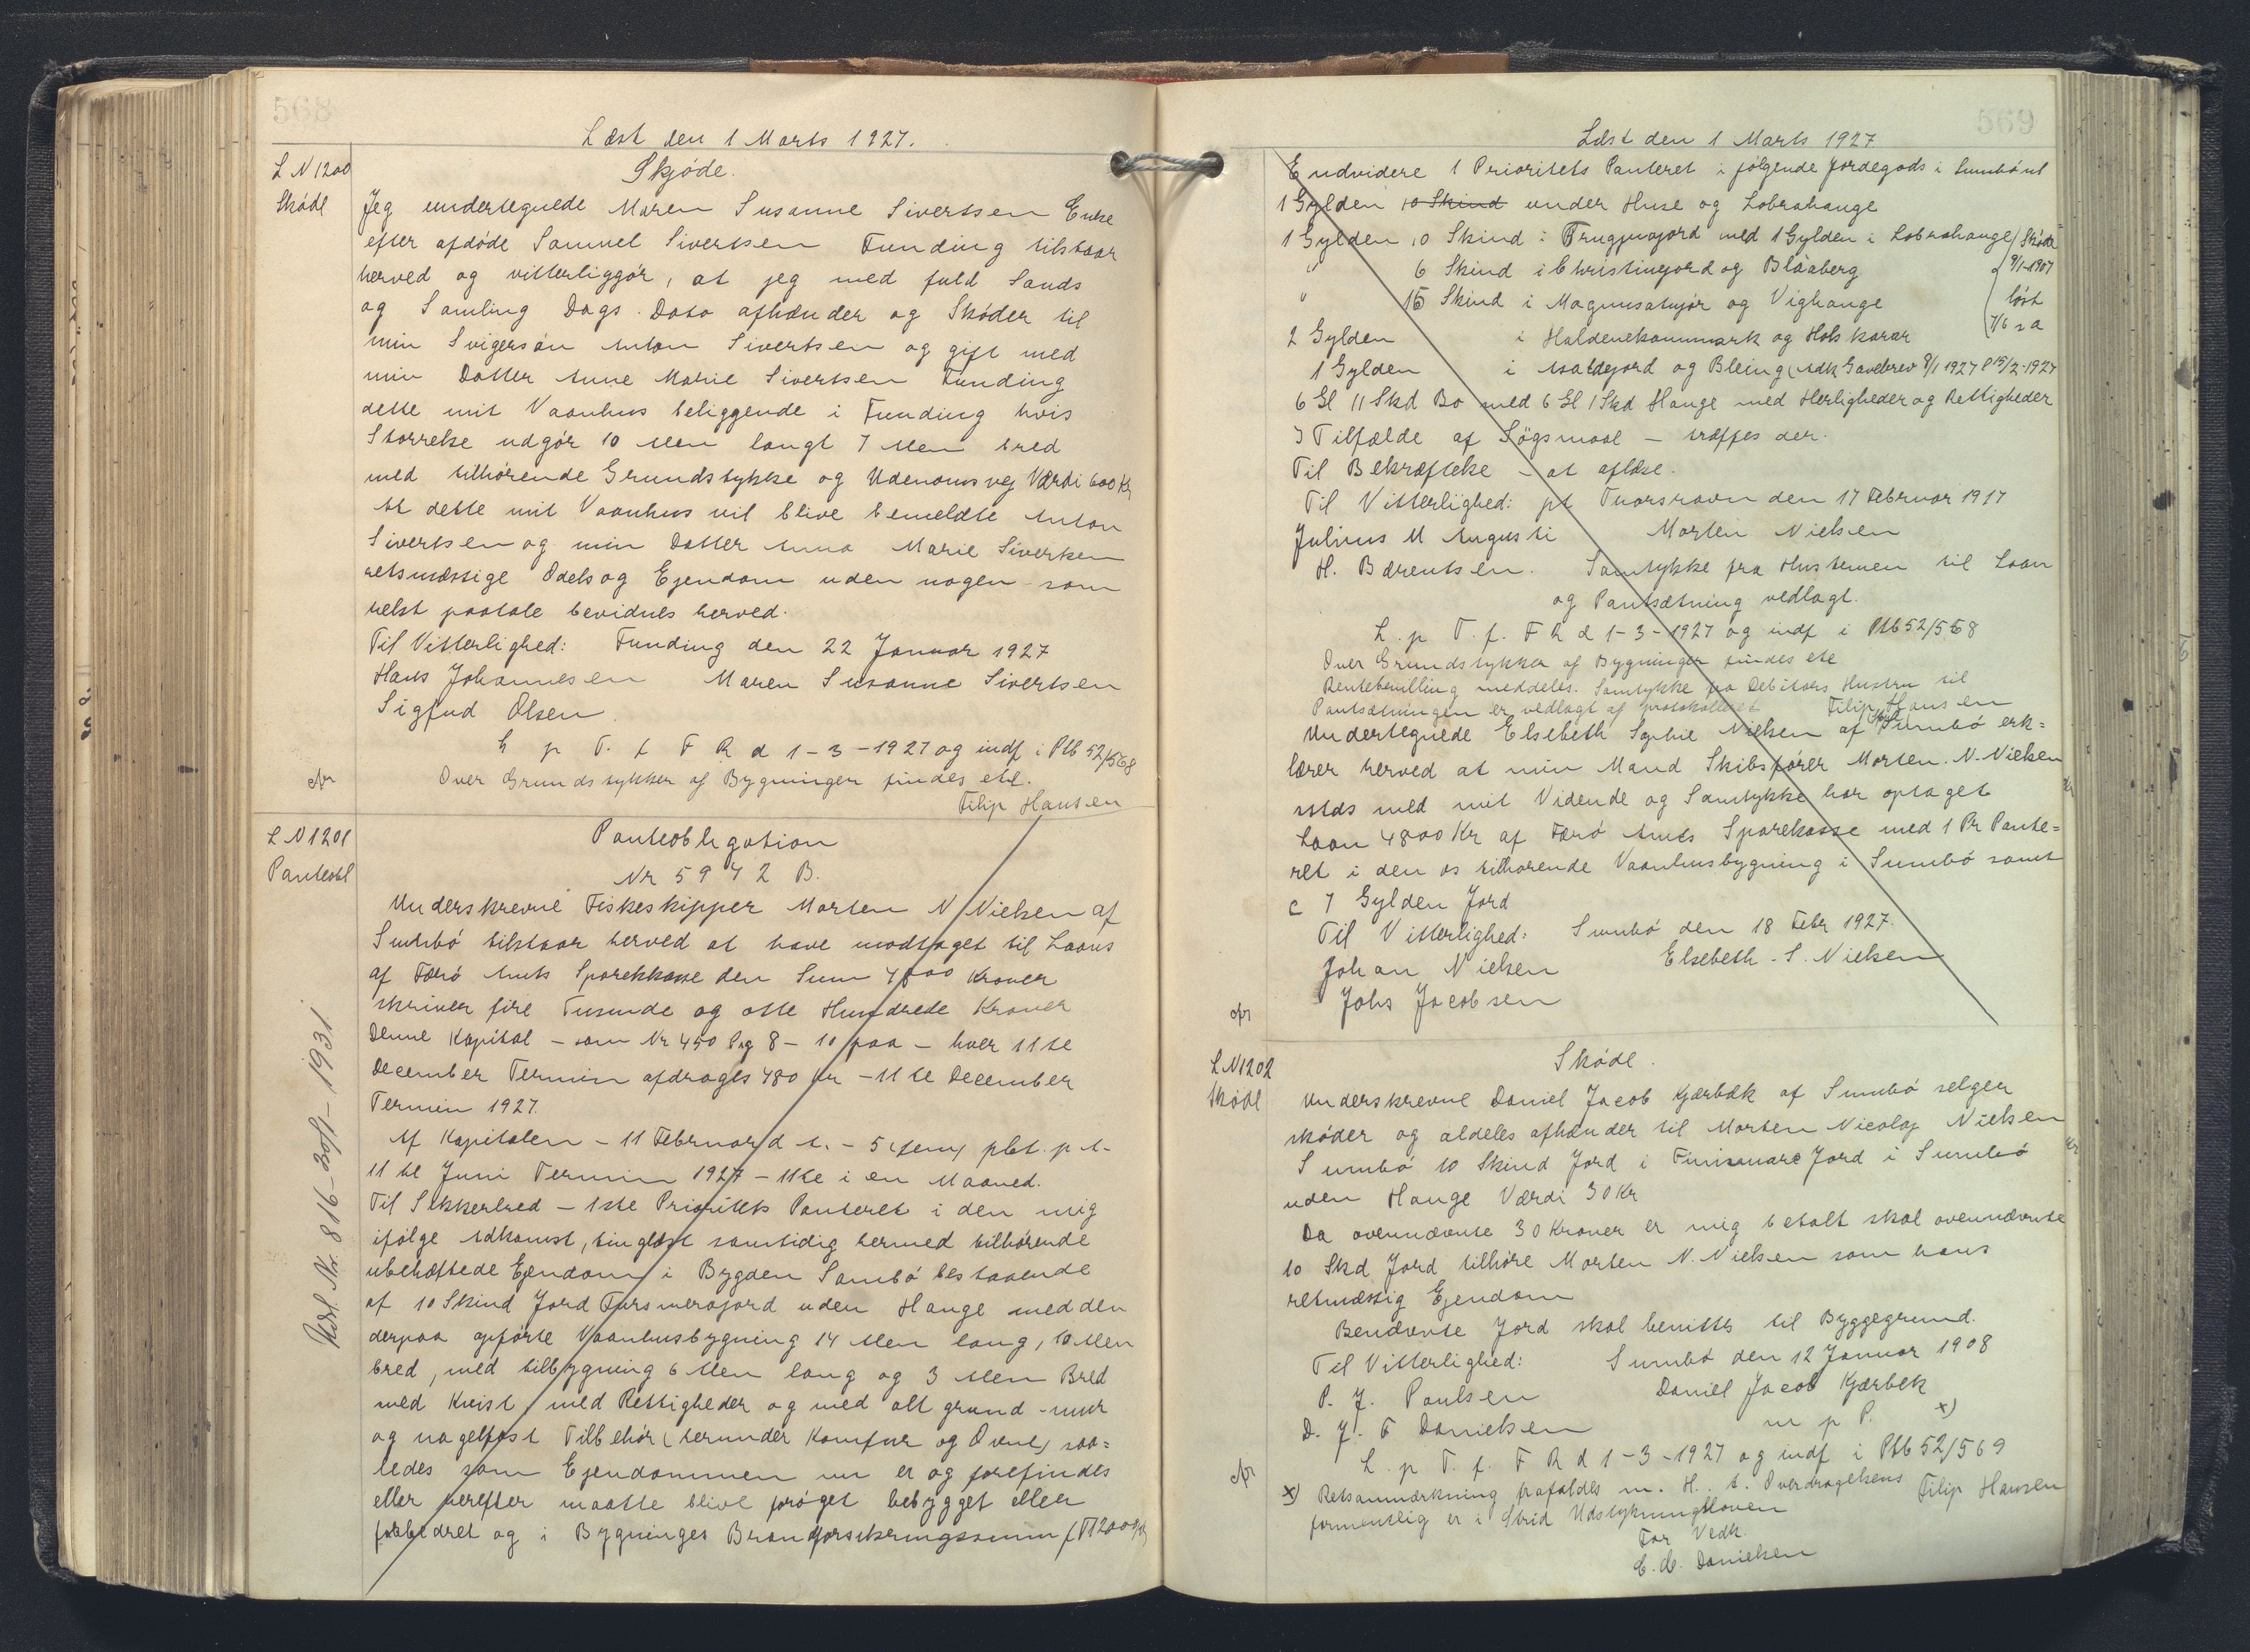 568
Læst den 1 Marts 1927.
L N 1200
Skøde
Skjøde.
Jeg undertegnede Maren Susanne Sivertsen Enke
efter afdøde Samuel Sivertsen Funding tilstaar
herved og vitterliggør, at jeg med fuld Sands
og Samling Dags. Dato afhænder og Skøder til
min Svigersøn Anton Sivertsen og gift med
min Datter Anne Marie Sivertsen Funding
dette mit Vaanhus beliggende i Funding hvis
Storrelse udgør 10 Alen langt 7 Alen bred
med tilhørende Grundstykke og Udenomsvej Værdi 600 Kr
At dette mit Vaanhus vil blive bemeldte Anton
Sivertsen og min Datter Anna Marie Sivertsen
retsmæssige Odels og Ejendom uden nogen som
helst paatale bevidnes herved.
Til Vitterlighed: Funding den 22 Januar 1927
Hans Johannesen Maren Susanne Sivertsen
Sigfud Olsen
L p T. f F R d 1-3-1927 og indf i Ptb 52/568
Over Grundstykker af Bygninger findes etc.
Filip Hansen
L N 1201
Panteobl
Panteobligation
Nr 5942 B.
Underskrevne Fiskeskipper Morten N Nielsen af
Sumbø tilstaar herved at have modtaget til Laans
af Færø Amts Sparekkasse den Sum 4800 Kroner
skriver fire Tusinde og otte Hundrede Kroner
Denne Kapital - som Nr 450 Pag 8 - 10 paa - hver 11te
December Termin afdrages 480 Kr - 11te December
Termin 1927.
Af Kapitalen - 11 Februar d A. - 5 (fem) pCt. p A-
11te Juni Termin 1927 - 11te i en Maaned.
Til Sikkerhed - 1ste Prioritets Panteret i den mig
ifølge Adkomst, tinglæst samtidig hermed tilhørende
ubehæftede Ejendom i Bygden Sumbø bestaaende
af 10 Skind Jord Fursmerajord uden Hauge med den
derpaa opførte Vaanhusbygning 14 Alen lang, 10 Alen
bred, med tilbygning 6 Alen lang og 3 Alen Bred
med Kvist, med Rettigheder og med alt grund - mur
og nagelfast Tilbehør (herunder Komfur og Ovne) saa=
ledes som Ejendommen nu er og forefindes
eller herefter maatte blive forøget bebygget eller
forbedret og i Bygninges Brandforsikringssum (VI200/
569
Læst den 1 Marts 1927
Endvidere 1 Prioritets Panteret i følgende Jordegods i Sumbø nl
1 Gylden 10 Skind under Huse og Lobrahauge
1 Gylden 10 Skind i Trugjvajord med 1 Gylden i Lobrahauge (Skøde
" 6 Skind i Christinejord og Blåaberg 9/1-1907
" 15 Skind i Magnusatujør og Vighauge løst
2 Gylden i Haldenekommark og Holskarar 7/6 s a
1 Gylden i Haldejord og Bleing (Adk Gavebrev 9/1 1927 l 15/2-1927
6 Gl 11 Skd Bo med 6 Gl 1 Skd Hauge med Herligheder og Rettigheder
I Tilfælde af Søgsmaal - træffes der.
Til Bekræftelse - at aflæse.
Til Vitterlighed: pt Tvorshavn den 17 Februar 1917
Julius M Augusti Morten Nielsen
H. Bærentsen. Samtykke fra Hustruen til Laan
og Pantsætning vedlagt.
L. p T. f. F R d 1-3-1927 og indf i Ptb 52/568
Over Grundstykker af Bygninger findes etc
Rentebevilling meddeles. Samtykke fra Debitors Hustru til
Pantsætningen er vedlagt af protokolleret Filip Hansen
Undertegnede Elsebeth Sophie Nielsen af Sumbø erk=
lærer herved at min Mand Skibsfører Morten. N. Nielsen
smds med mit Vidende og Samtykke har optaget
Laan 4800 Kr af Færø Amts Sparekasse med 1 Pr Pante=
ret i den os tilhorende Vaanhusbygning i Sumbø samt
c 7 Gylden Jord
Til Vitterlighed: Sumbø den 18 Febr 1927.
Johan Nielsen Elsebeth. S. Nielsen
Johs Jacobsen
L N 1202
Skøde
Skøde.
Underskrevne Daniel Jacob Kjærbæk af Sumbø selger
skøder og aldeles afhænder til Morten Nicolaj Nielsen
Sumbø 10 Skind Jord i Finismare Jord i Sumbø
uden Hauge Værdi 30 Kr
Da ovennævnte 30 Kroner er mig betalt skal ovennævnte
10 Skd Jord tilhøre Morten N. Nielsen som hans
retmæssig Ejendom
Benævnte Jord skal benittes til Byggegrund.
Til Vitterlighed: Sumbø den 12 Januar 1908
P. J. Poulsen Daniel Jacob Kjærbek
D. J. F Danielsen m p P. x)
L. p T. f. F R d 1-3-1927 og indf i Ptb 52/569
x) Retsanmærkning frafaldes m. H. t. Overdragelsens Filip Hansen
formentlig er i Strid Udstykningsloven
For Vedk.
E. C. Danielsen
Udsl. Nr. 816-30/1-1931